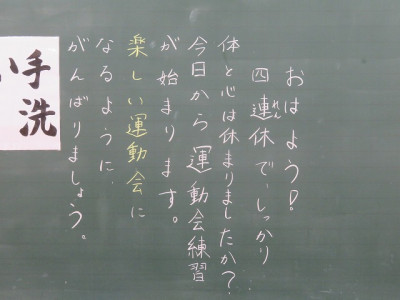 おはよう!
四連休で、しっかり
れん
体と心は休まりましたか?
今日から運動会練習
が始まります。
楽しい運動会に
なるように、
がんばりましょう。
手洗
い